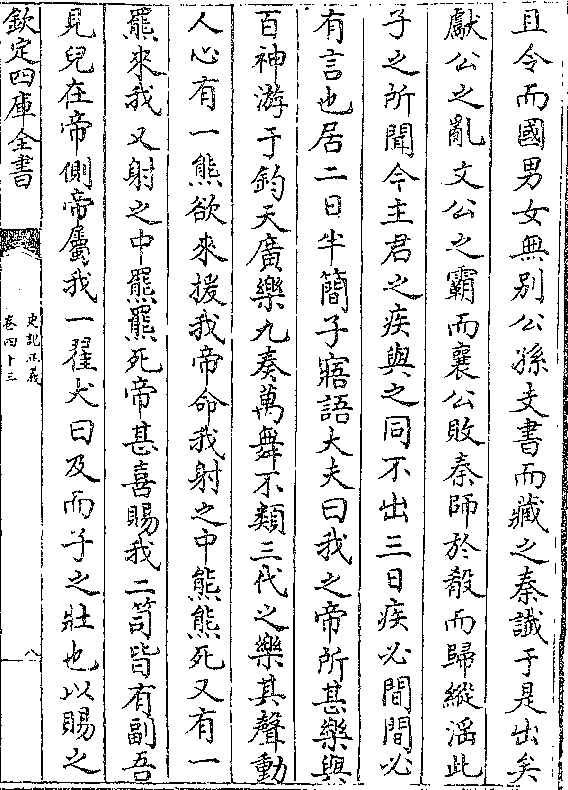 且令而國男女無别公孫支書而藏之秦䜟于是出矣
獻公之亂文公之霸而襄公敗秦師於殽而歸縱滛此
子之所聞今主君之疾與之同不出三日疾必間間必
有言也居二日半簡子寤語大夫曰我之帝所甚樂與
百神游于鈞天廣樂九奏萬舞不類三代之樂其聲動
人心有一熊欲來援我帝命我射之中熊熊死又有一
羆來我又射之中羆羆死帝甚喜賜我二笥皆有副吾
見兒在帝側帝屬我一翟犬曰及而子之壯也以賜之
欽定四庫全書
史記正義
卷四十三
八